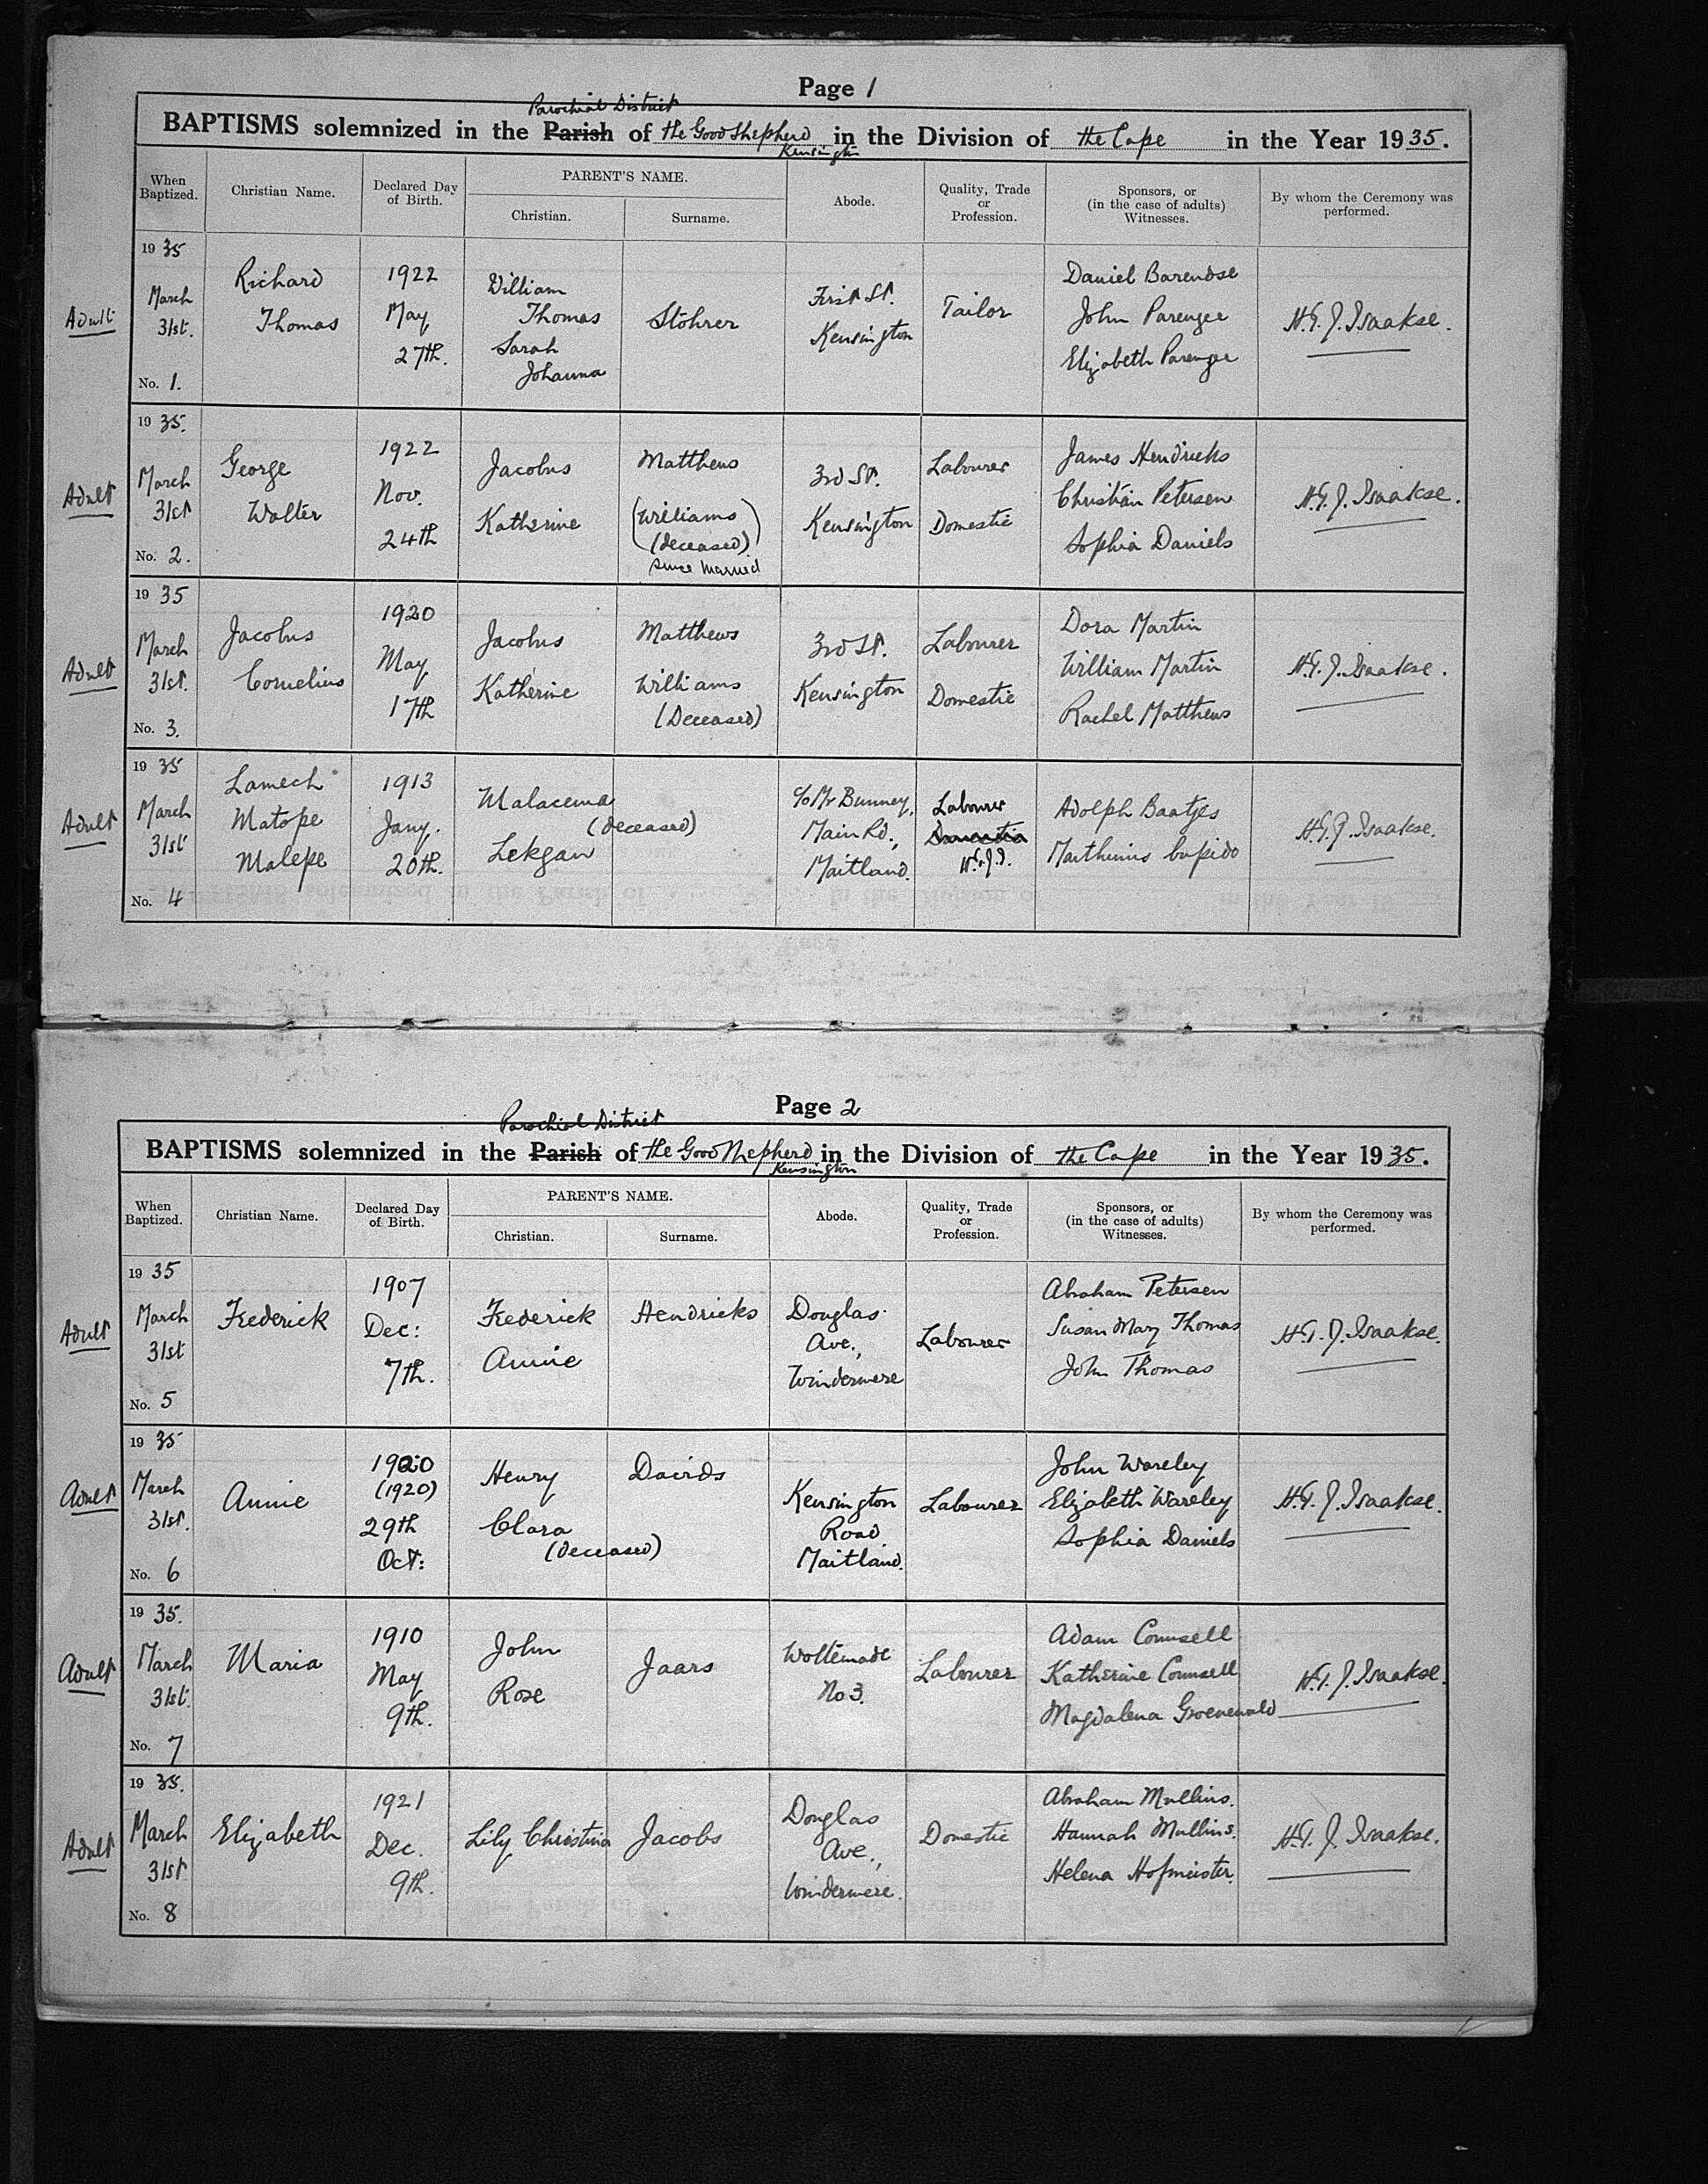 Page 1
Parochial District
BAPTISMS solemnized in the Parish of the Good Shepherd in the Division of the Cape in the Year 1935.
Kensington
When Baptized. Christian Name. Declared Day of Birth. PARENT'S NAME. Christian. Surname. Abode. Quality, Trade or Profession. Sponsors, or (in the case of adults) Witnesses. By whom the Ceremony was performed.
Adult 1935 March 31st. No. 1. Richard Thomas 1922 May 27th. William Thomas Sarah Johanna Stohrer First St. Kensington Tailor Daniel Barendse John Parenzee Elizabeth Parenzee H.G.J. Isaakse.
Adult 1935. March 31st No. 2. George Walter 1922 Nov. 24th Jacobus Katherine Matthews (Williams) (deceased) since married 3rd St. Kensington Labourer Domestic James Hendricks Christian Petersen Sophia Daniels H.G.J. Isaakse.
Adult 1935 March 31st. No. 3. Jacobus Cornelius 1920 May 17th Jacobus Katherine Matthews Williams (Deceased) 3rd St. Kensington Labourer Domestic Dora Martin William Martin Rachel Matthews H.G.J. Isaakse.
Adult 1935 March 31st No. 4 Lamech Matope Malepe 1913 Jany. 20th. Malacema (deceased) Lekgau c/o Mr Bunney, Main Rd., Maitland. Labourer Domestic H.G.J.I. Adolph Baatjes Marthinus Cupido H.G.J. Isaakse.
Page 2
Parochial District
BAPTISMS solemnized in the Parish of the Good Shepherd in the Division of the Cape in the Year 1935.
Kensington
When Baptized. Christian Name. Declared Day of Birth. PARENT'S NAME. Christian. Surname. Abode. Quality, Trade or Profession. Sponsors, or (in the case of adults) Witnesses. By whom the Ceremony was performed.
Adult 1935 March 31st No. 5 Frederick 1907 Dec: 7th. Frederick Annie Hendricks Douglas Ave., Windermere Labourer Abraham Petersen Susan Mary Thomas John Thomas H.G.J. Isaakse.
Adult 1935 March 31st. No. 6 Annie 1920 (1920) 29th Oct: Henry Clara (deceased) Davids Kensington Road Maitland. Labourer John Wareley Elizabeth Wareley Sophia Daniels H.G.J. Isaakse.
Adult 1935. March 31st. No. 7 Maria 1910 May 9th. John Rose Jaars Woltemade No 3. Labourer Adam Counsell Katherine Counsell Magdalena Groenewald H.G.J. Isaakse.
Adult 1935. March 31st No. 8 Elizabeth 1921 Dec. 9th. Lily Christina Jacobs Douglas Ave., Windermere. Domestic Abraham Mullins. Hannah Mullins. Helena Hofmeister. H.G.J. Isaakse.